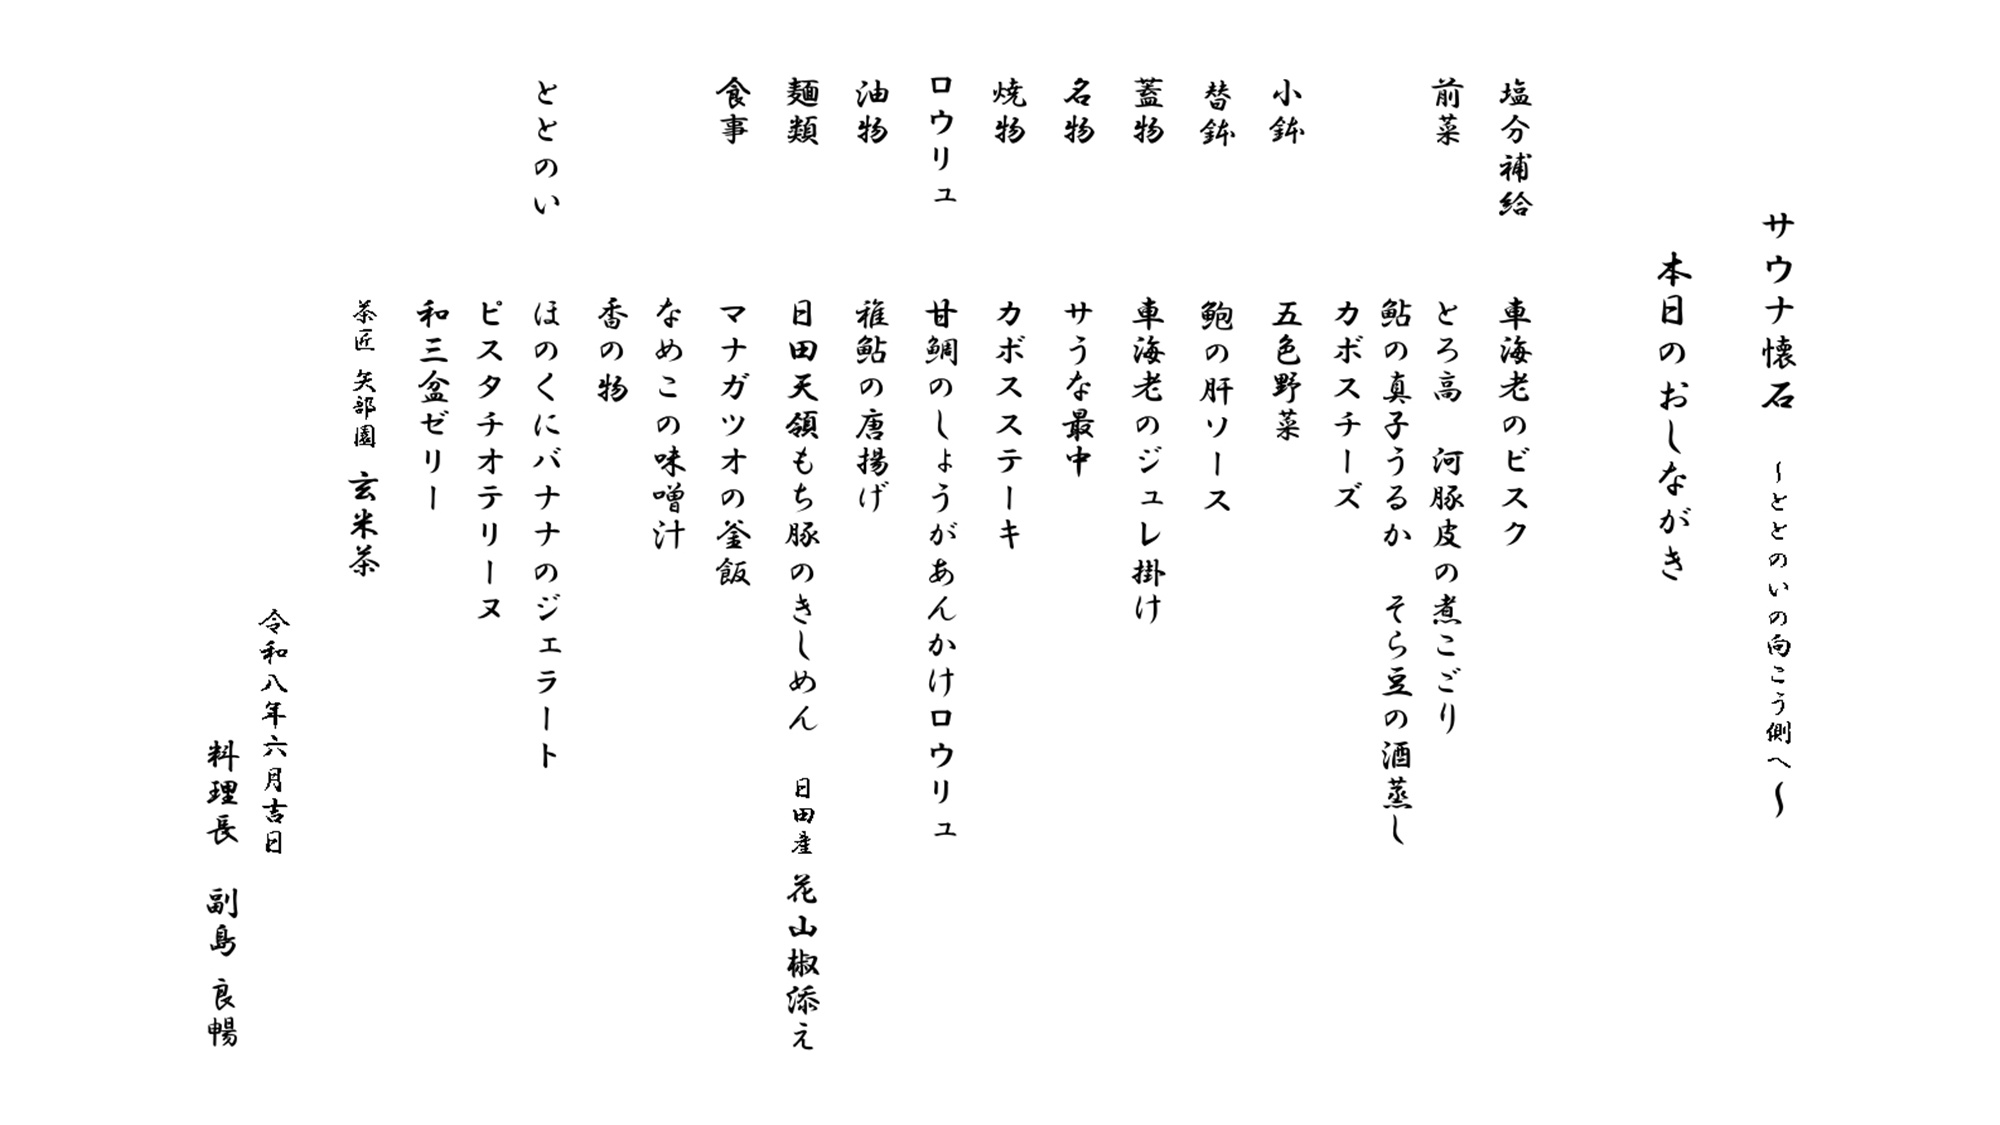 サウナ懐石 ～ととのいの向こう側へ～
本日のおしながき
塩分補給 車海老のビスク
前菜 とろ高 河豚皮の煮こごり
鮎の真子うるか そら豆の酒蒸し
カボスチーズ
小鉢 五色野菜
替鉢 鮑の肝ソース
蓋物 車海老のジュレ掛け
名物 サうな最中
焼物 カボスステーキ
ロウリュ 甘鯛のしょうがあんかけロウリュ
油物 稚鮎の唐揚げ
麺類 日田天領もち豚のきしめん 日田産 花山椒添え
食事 マナガツオの釜飯
なめこの味噌汁
香の物
ととのい ほのくにバナナのジェラート
ピスタチオテリーヌ
和三盆ゼリー
茶匠 矢部園 玄米茶
令和八年六月吉日
料理長 副島 良暢